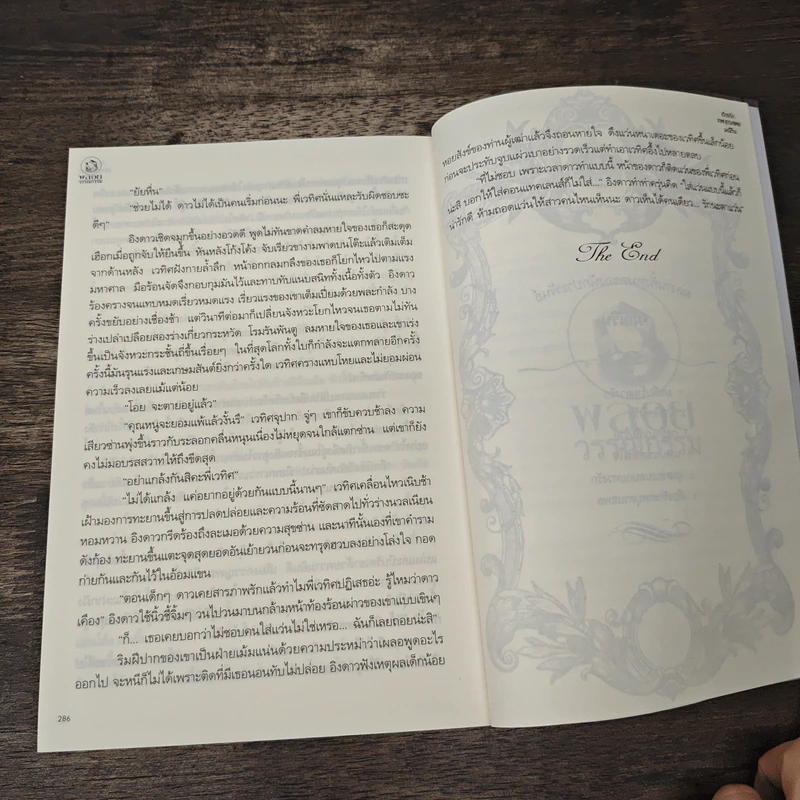 พลอย
วรรณกรรม
"ยัยหื่น"
"ช่วยไม่ได้ ดาวไม่ได้เป็นคนเริ่มก่อนนะ พี่เวทิศนั่นแหละรับผิดชอบซะ
ดีๆ"
อิงดาวเชิดจมูกขึ้นอย่างอวดดี พูดไม่ทันขาดคำลมหายใจของเธอก็สะดุด
เฮือกเมื่อถูกจับให้ยืนขึ้น หันหลังโก้งโค้ง จับเรียวขางามพาดบนโต๊ะแล้วเติมเต็ม
จากด้านหลัง เวทิศฝังกายล้ำลึก หน้าอกกลมกลึงของเธอก็โยกไหวไปตามแรง
มหาศาล มือร้อนจัดจึงกอบกุมมันไว้และทาบทับแนบสนิททั้งเนื้อทั้งตัว อิงดาว
ร้องครางจนแทบหมดเรี่ยวหมดแรง เรี่ยวแรงของเขาเต็มเปี่ยมด้วยพละกำลัง บาง
ครั้งขยับอย่างเชื่องช้า แต่วินาทีต่อมาก็เปลี่ยนจังหวะโยกไหวจนเธอตามไม่ทัน
ร่างเปล่าเปลือยสองร่างเกี่ยวกระหวัด โรมรันพันตู ลมหายใจของเธอและเขาเร่ง
ขึ้นเป็นจังหวะกระชั้นถี่ขึ้นเรื่อยๆ ในที่สุดโลกทั้งใบก็กำลังจะแตกทลายอีกครั้ง
ครั้งนี้มันรุนแรงและเกษมสันต์ยิ่งกว่าครั้งใด เวทิศครางแหบโหยและไม่ยอมผ่อน
ความเร็วลงเลยแม้แต่น้อย
"โอย จะตายอยู่แล้ว"
"คุณหนูจะยอมแพ้แล้วงั้นรึ" เวทิศจุปาก จู่ๆ เขาก็ขับควบช้าลง ความ
เสียวซ่านพุ่งขึ้นราวกับระลอกคลื่นหนุนเนื่องไม่หยุดจนใกล้แตกซ่าน แต่เขาก็ยัง
คงไม่มอบรสสวาทให้ถึงขีดสุด
"อย่าแกล้งกันสิคะพี่เวทิศ"
"ไม่ได้แกล้ง แค่อยากอยู่ด้วยกันแบบนี้นานๆ" เวทิศเคลื่อนไหวเนิบช้า
เฝ้ามองการทะยานขึ้นสู่การปลดปล่อยและความร้อนที่ซัดสาดไปทั่วร่างนวลเนียน
หอมหวาน อิงดาวกรีดร้องถึงละเมอด้วยความสุขซ่าน และนาทีนั้นเองที่เขาคำราม
ดังก้อง ทะยานขึ้นแตะจุดสุดยอดอันเย้ายวนก่อนจะทรุดฮวบลงอย่างโล่งใจ กอด
ก่ายกันและกันไว้ในอ้อมแขน
"ตอนเด็กๆ ดาวเคยสารภาพรักแล้วทำไมพี่เวทิศปฏิเสธอ่ะ รู้ไหมว่าดาว
เคือง" อิงดาวใช้นิ้วชี้จิ้มๆ วนไปวนมาบนกล้ามหน้าท้องร้อนผ่าวของเขาแบบเขินๆ
"ก็... เธอเคยบอกว่าไม่ชอบคนใส่แว่นไม่ใช่เหรอ... ฉันก็เลยถอยน่ะสิ"
ริมฝีปากของเขาเป็นฝ่ายเม้มแน่นด้วยความประหม่าว่าเผลอพูดอะไร
ออกไป จะหนีก็ไม่ได้เพราะติดที่มีเธอนอนทับไม่ปล่อย อิงดาวฟังเหตุผลเด็กน้อย
286
หอยสังข์ของท่านผู้เฒ่าแล้วจึงถอนหายใจ ดึงแว่นหนาเตอะของเวทิศขึ้นเล็กน้อย
ก่อนจะประทับจูบแผ่วเบาอย่างรวดเร็วแต่ทำเอาเวทิศอึ้งไปหลายตลบ
"ที่ไม่ชอบ เพราะเวลาดาวทำแบบนี้ หน้าของดาวก็ติดแว่นของพี่เวทิศก่อน
น่ะสิ บอกให้ใส่คอนแทคเลนส์ก็ไม่ใส่..." อิงดาวทำท่าครุ่นคิด "ใส่แว่นแบบนี้แล้วก็
น่ารักดี ห้ามถอดแว่นให้สาวคนไหนเห็นนะ ดาวเห็นได้คนเดียว... รักนะตาแว่น"
The End